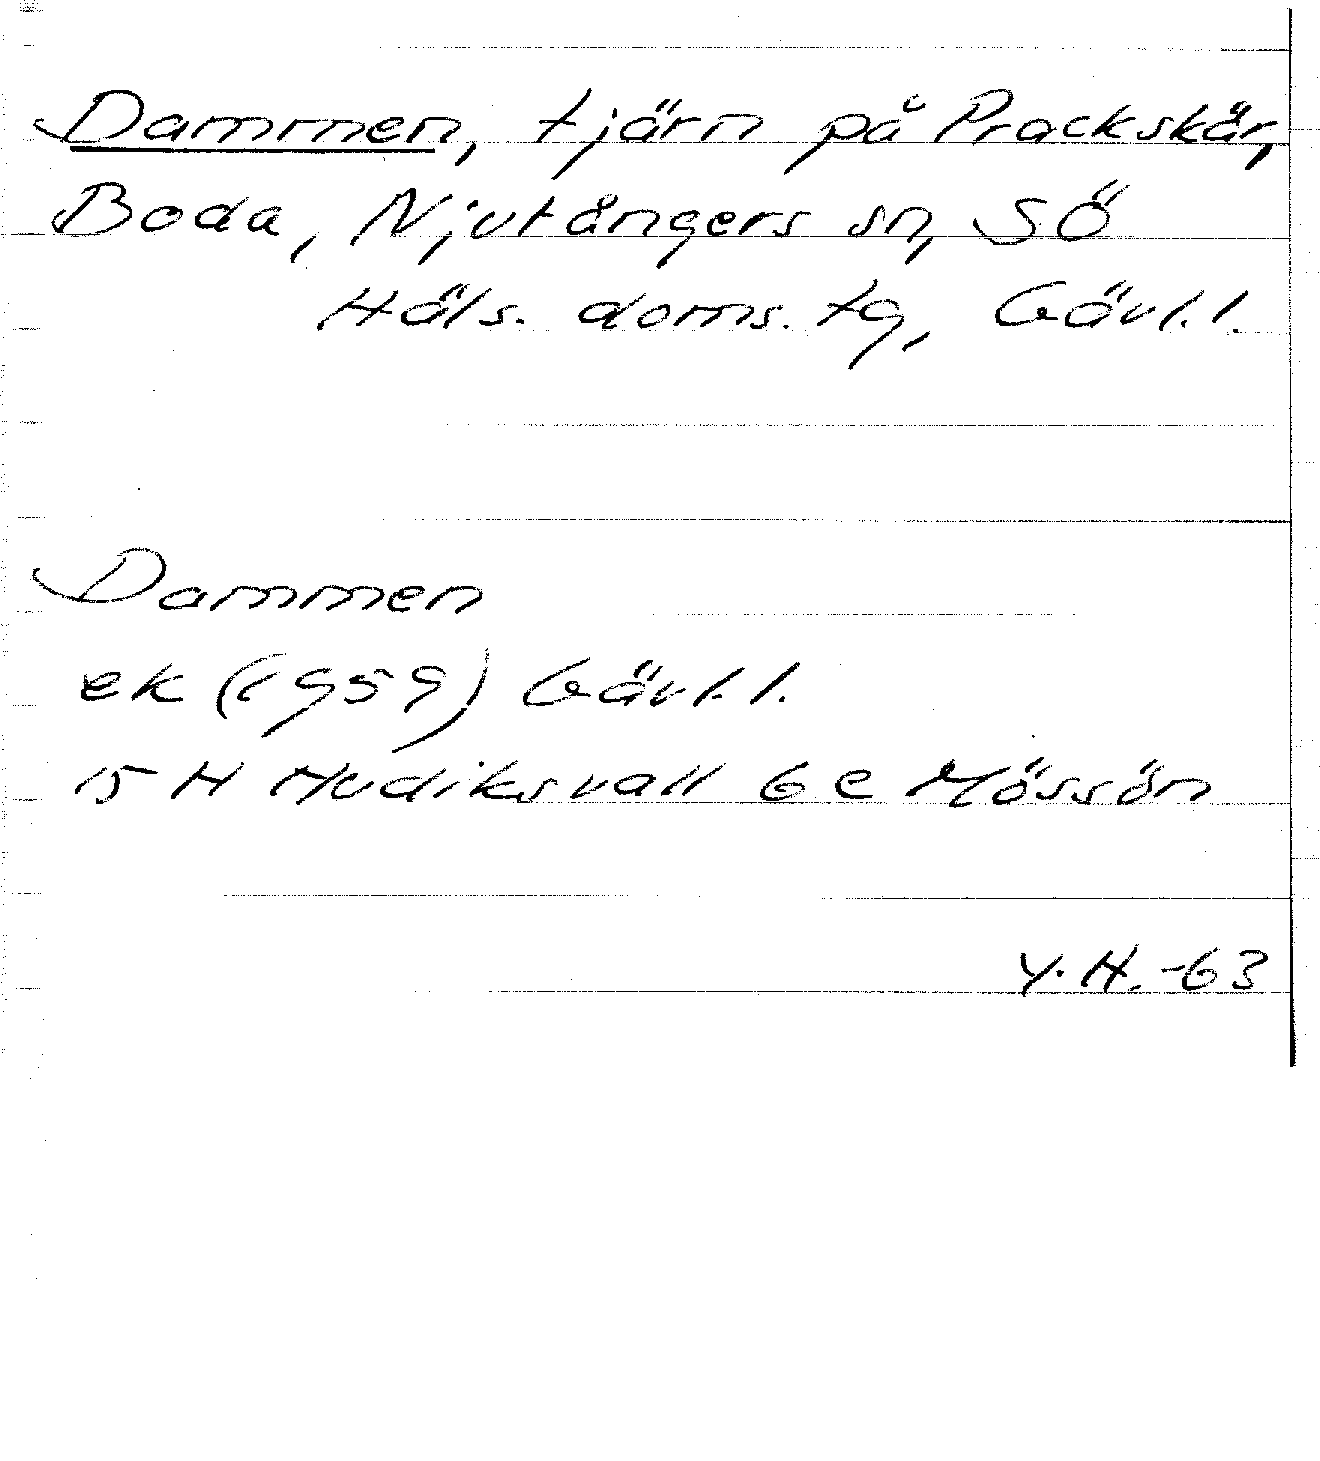 Dammen, tjärn på Prackskär,
Boda, Njutångers sn, SÖ
Häls. doms. tg, Gävl. l.
Dammen
ek (1959) Gävl. l.
15 H Hudiksvall 6 e Mössön
Y. H. -63